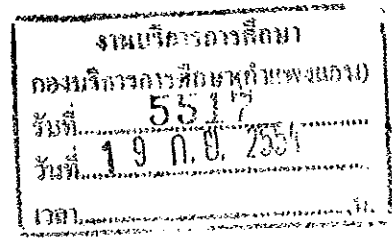 งานบริการการศึกษา
กองบริการการศึกษา(กำแพงแสน)
รับที่..........5517..........
วันที่ 19 ก.ย. 2554
เวลา..........น.